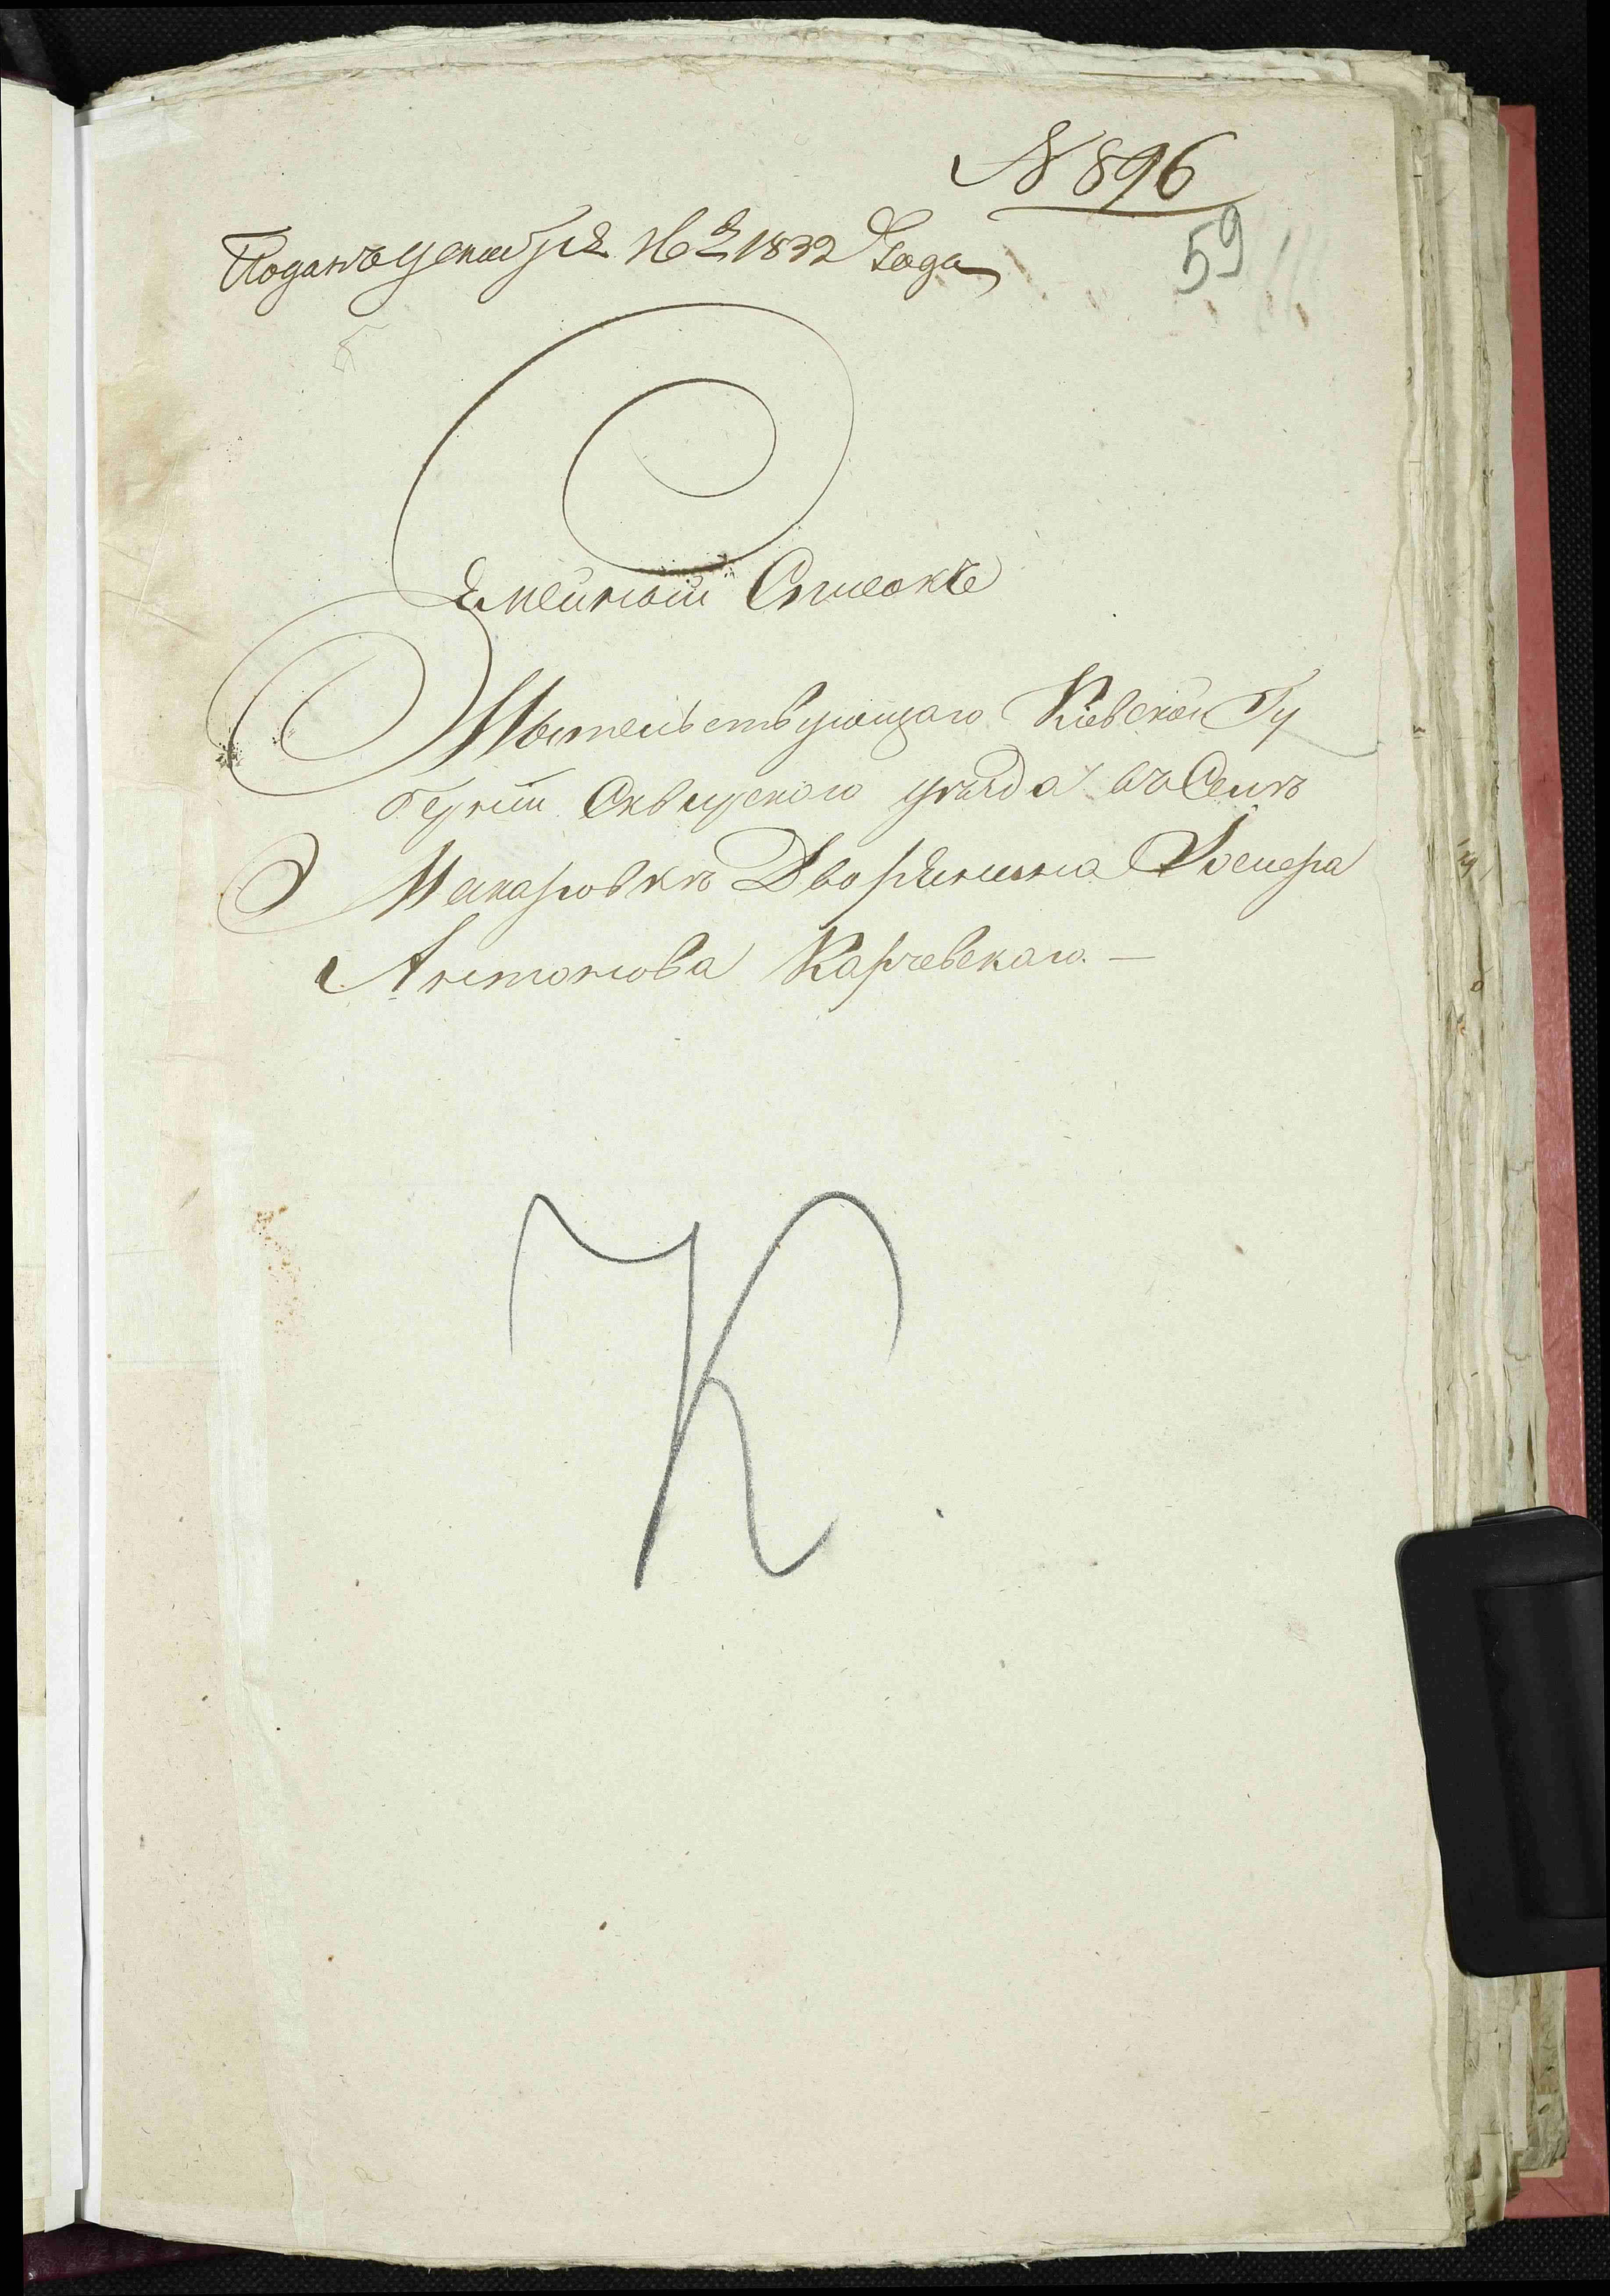 N 896
59
Поданъ декабря 16го 1832 Года
Семейной Списокъ
Жительствующаго Кіевской Гу
берніи Сквирскаго уѣзда въ Селѣ
Макаровкѣ Дворянина Іосифа
Антонова Карчевскаго. —
К